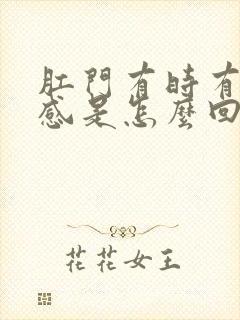 肛門有時有
感是怎麼回
花花女王